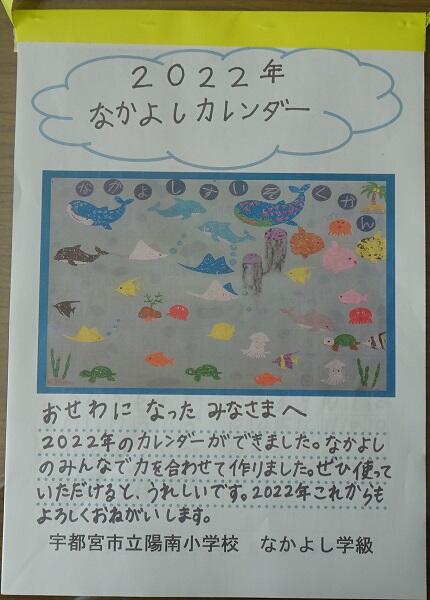 2022年
なかよしカレンダー
なかよしすいぞくかん
おせわに なった みなさまへ
2022年のカレンダーができました。なかよし
のみんなで力を合わせて作りました。ぜひ使って
いただけると、うれしいです。2022年これからも
よろしくおねがいします。
宇都宮市立陽南小学校 なかよし学級